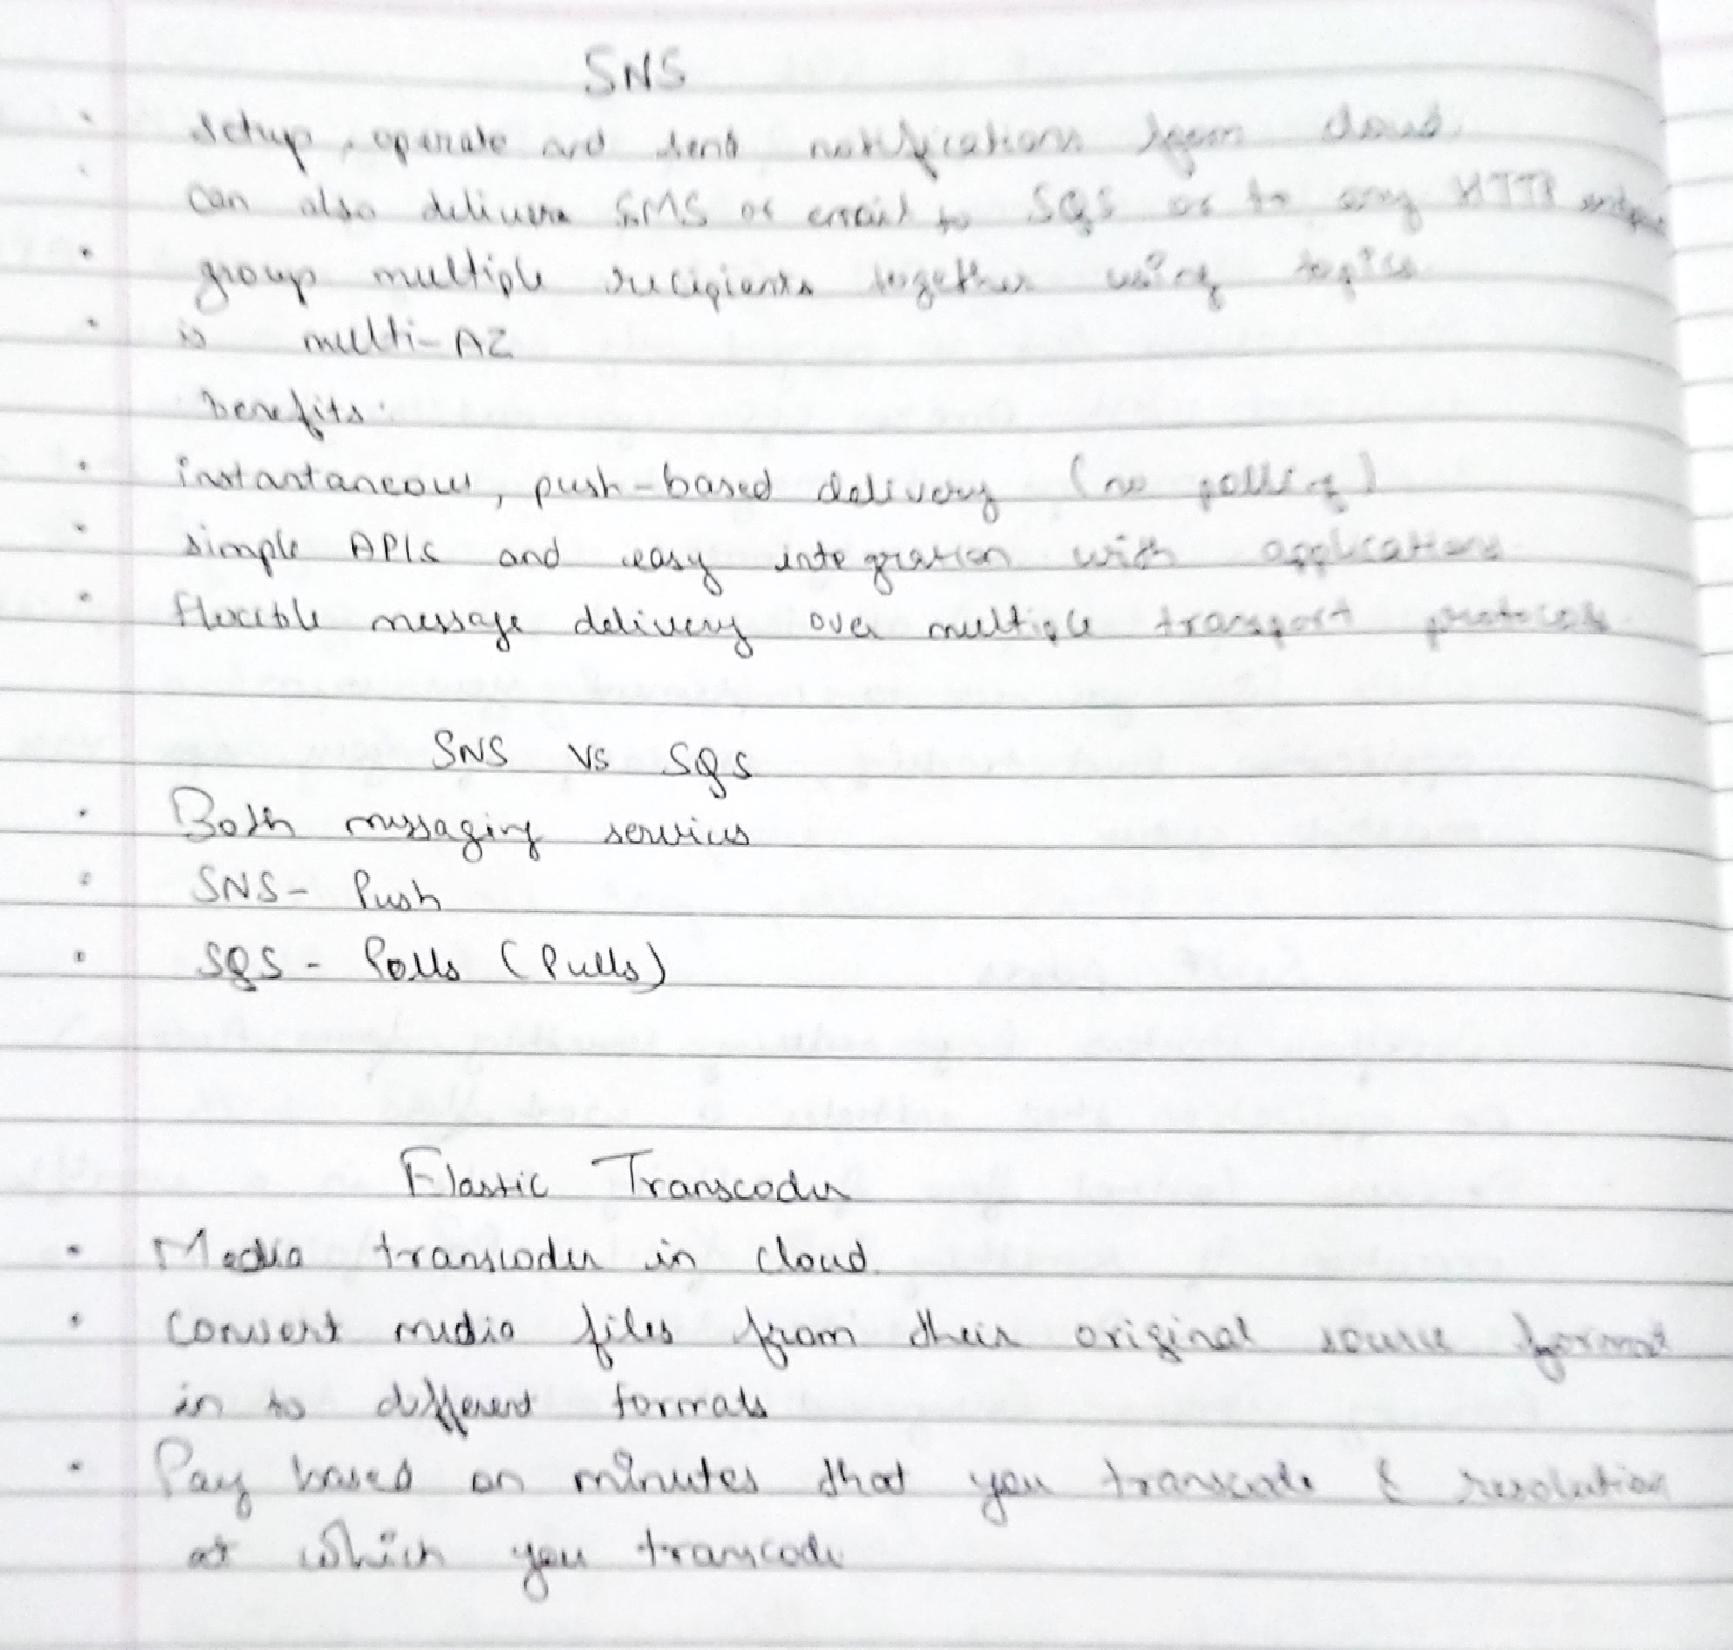 SNS
• setup, operate and send notifications from cloud.
• can also deliver SMS or email to SQS or to any HTTP endpoint
• group multiple recipients together using topics
• is multi-AZ
benefits:
• instantaneous, push-based delivery (no polling)
• simple APIs and easy integration with applications
• flexible message delivery over multiple transport protocols
SNS vs SQS
• Both messaging services
• SNS - Push
• SQS - Polls (Pulls)
Elastic Transcoder
• Media transcoder in cloud.
• convert media files from their original source format
in to different formats
• Pay based on minutes that you transcode & resolution
at which you transcode